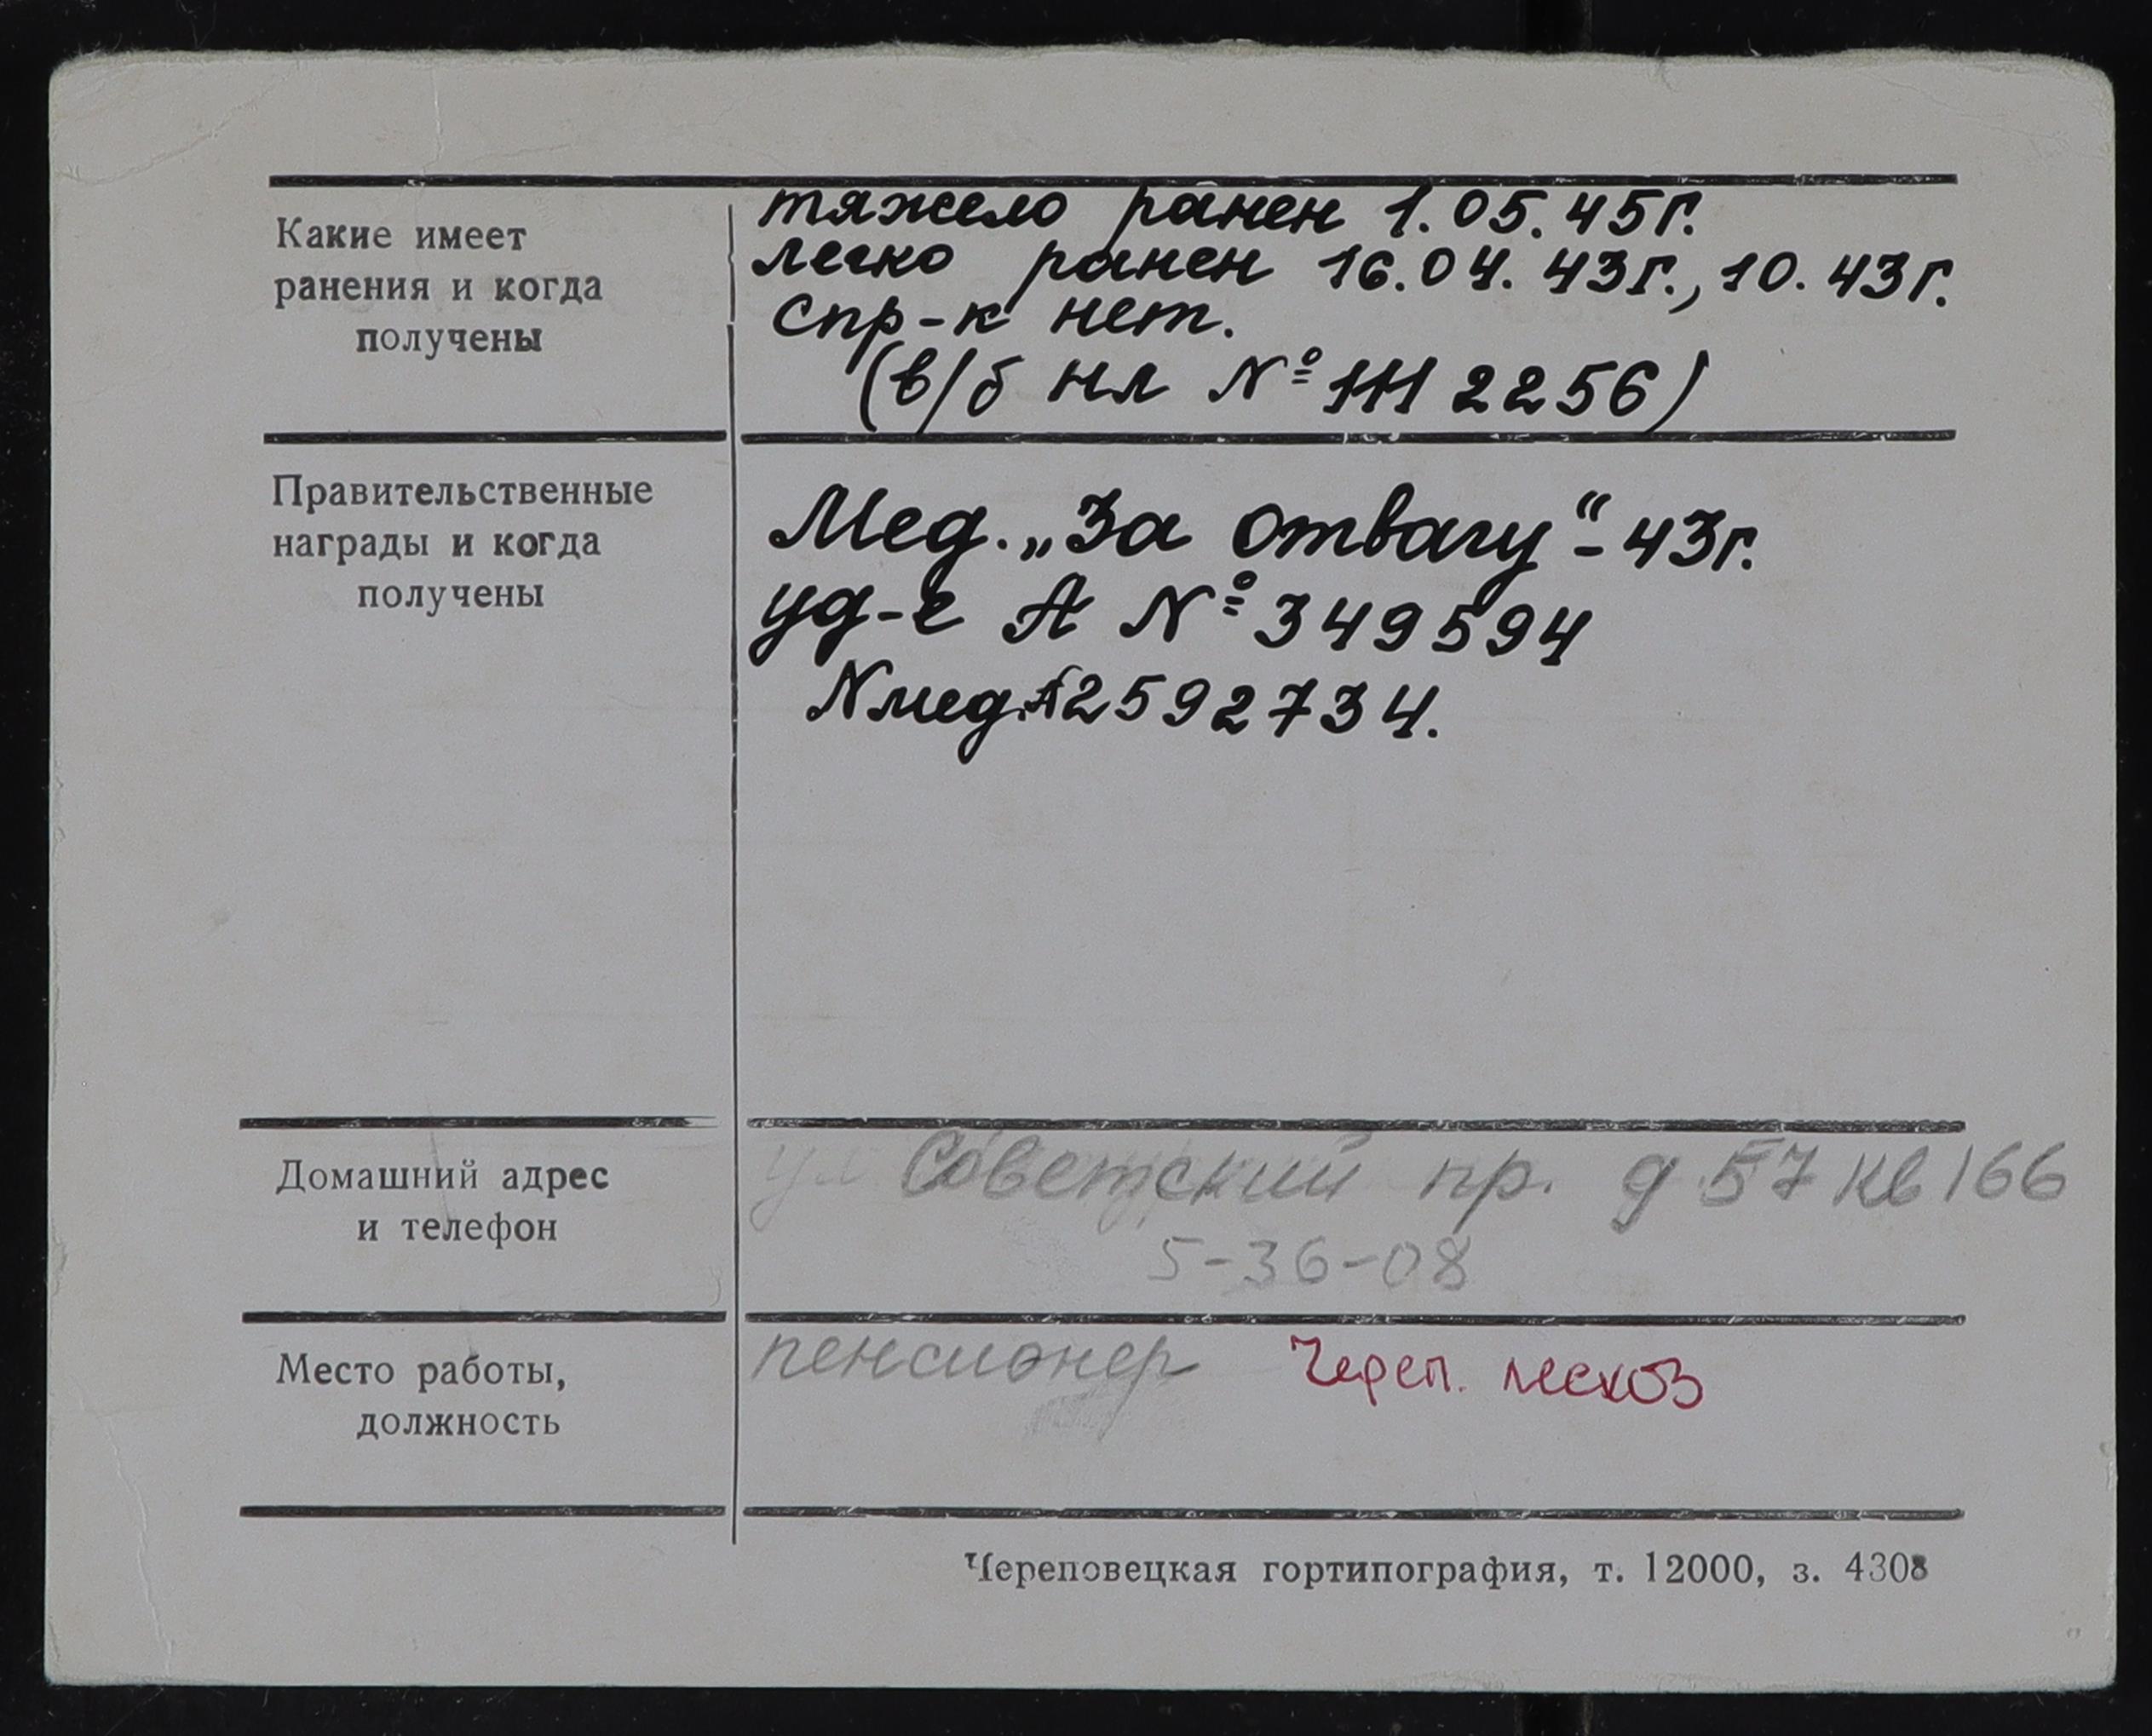 Какие имеет
ранения и когда
получены
тяжело ранен 1.05.45г.
легко ранен 16.04.43г., 10.43г.
спр-к нет.
(в/б НЛ № 2256)
Правительственные
награды и когда
получены
Мед. „За отвагу“ - 43г.
уд-е А № 349594
N мед. 2592734.
Домашний адрес
и телефон
ул Советский пр. д.57 кв 166
5-36-08
Место работы,
должность
пенсионер Череп. лесхоз
Череповецкая гортипография, т. 12000, з. 4308